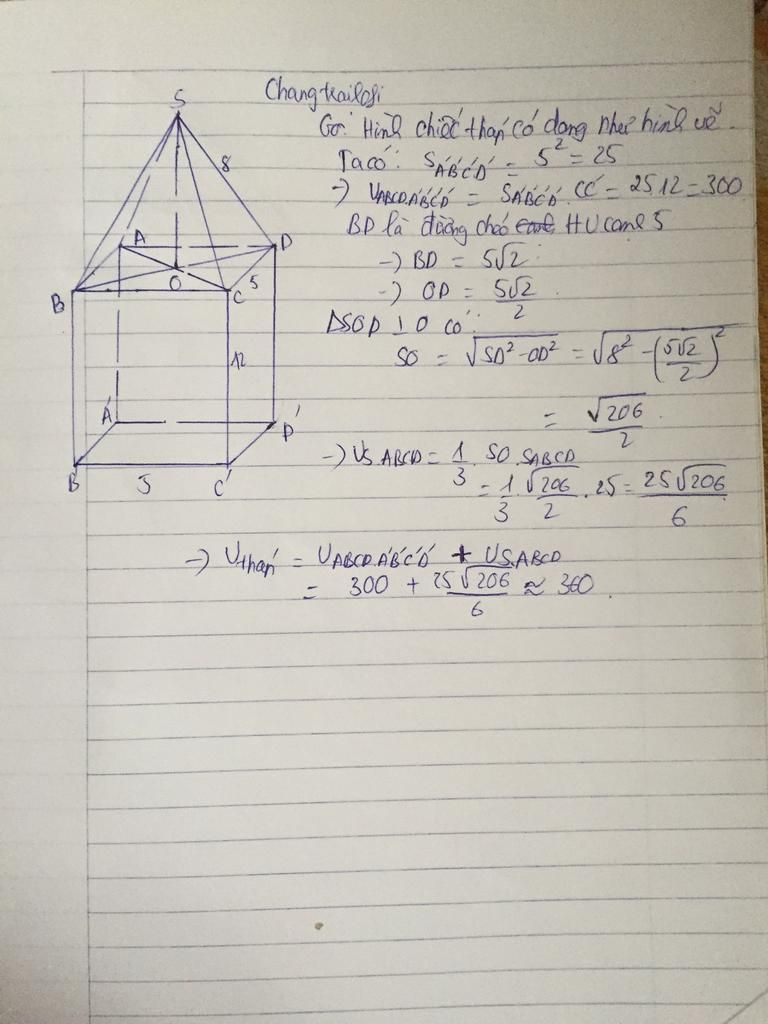 Changtrailofi
Gọi Hình chiếc tháp có dạng như hình vẽ.
Ta có: SA'B'C'D' = 5² = 25
→ VABCDA'B'C'D' = SA'B'C'D'.CC' = 25.12 = 300
BD là đường chéo HV cạnh 5
→ BD = 5√2
→ OD = 5√2/2
ΔSOD ⊥ O có:
SO = √(SD² - OD²) = √(8² - (5√2/2)²)
= √206/2.
→ VS.ABCD = 1/3 . SO . SABCD
= 1/3 . √206/2 . 25 = 25√206/6
→ Vtháp = VABCDA'B'C'D' + VS.ABCD
= 300 + 25√206/6 ≈ 360.
S
8
A
D
O
5
B
C
12
A'
D'
B'
5
C'